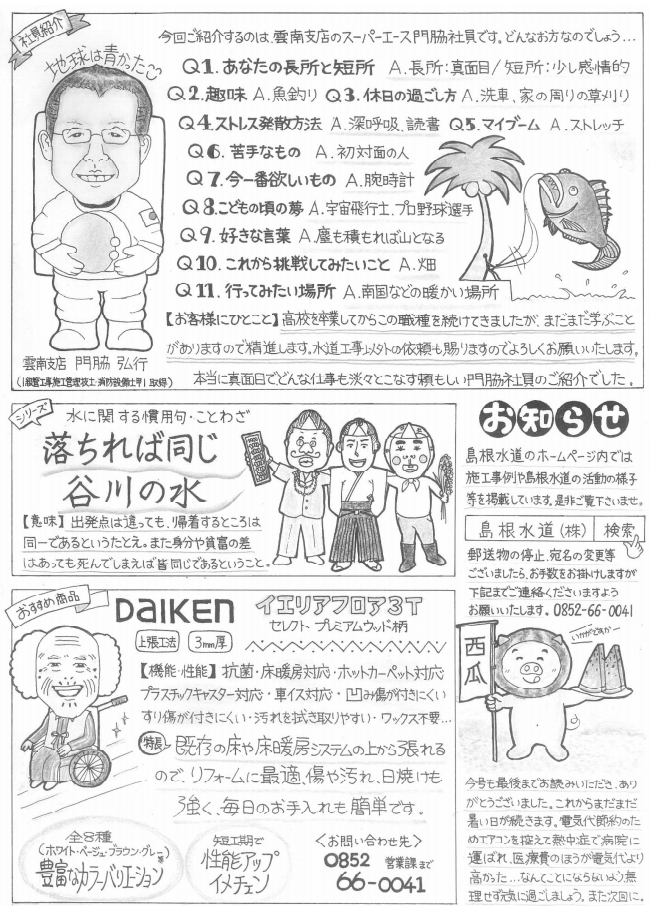 社員紹介
今回ご紹介するのは、雲南支店のスーパーエース門脇社員です。どんなお方なのでしょう…
地球は青かった
Q1.あなたの長所と短所 A.長所:真面目/短所:少し感情的
Q2.趣味 A.魚釣り Q3.休日の過ごし方 A.洗車、家の周りの草刈り
Q4.ストレス発散方法 A.深呼吸、読書 Q5.マイブーム A.ストレッチ
Q6.苦手なもの A.初対面の人
Q7.今一番欲しいもの A.腕時計
Q8.こどもの頃の夢 A.宇宙飛行士、プロ野球選手
Q9.好きな言葉 A.塵も積もれば山となる
Q10.これから挑戦してみたいこと A.畑
Q11.行ってみたい場所 A.南国などの暖かい場所
雲南支店 門脇 弘行
(1級管工事施工管理技士・消防設備士甲1取得)
【お客様にひとこと】高校を卒業してからこの職種を続けてきましたが、まだまだ学ぶこと
がありますので精進します。水道工事以外の依頼も賜りますのでよろしくお願いいたします。
本当に真面目でどんな仕事も淡々とこなす頼もしい門脇社員のご紹介でした。
シリーズ
水に関する慣用句・ことわざ
落ちれば同じ
谷川の水
【意味】出発点は違っても、帰着するところは
同一であるというたとえ。また身分や貧富の差
はあっても死んでしまえば皆同じであるということ。
お知らせ
島根水道のホームページ内では
施工事例や島根水道の活動の様子
等を掲載しています。是非ご覧下さいませ。
島根水道(株) 検索
郵送物の停止、宛名の変更等
ございましたら、お手数をお掛けしますが
下記までご連絡くださいますよう
お願いいたします。0852-66-0041
おすすめ商品
DAIKEN イエリアフロア3T
セレクト プレミアムウッド柄
上張工法 3mm厚
【機能・性能】抗菌・床暖房対応・ホットカーペット対応
プラスチックキャスター対応・車イス対応・凹み傷が付きにくい
すり傷が付きにくい・汚れを拭き取りやすい・ワックス不要…
特長 既存の床や床暖房システムの上から張れる
ので、リフォームに最適、傷や汚れ、日焼けも
強く、毎日のお手入れも簡単です。
全8種
(ホワイト・ベージュ・ブラウン・グレー)等
豊富なカラーバリエーション
短工期で
性能アップ
イメチェン
<お問い合わせ先>
0852 営業課まで
66-0041
西瓜
いかがですかー
今号も最後までお読みいただき、あり
がとうございました。これからまだまだ
暑い日が続きます。電気代節約のた
めエアコンを控えて熱中症で病院に
運ばれ、医療費のほうが電気代より
高かった…なんてことにならないよう、無
理せず元気に過ごしましょう。また次回に。